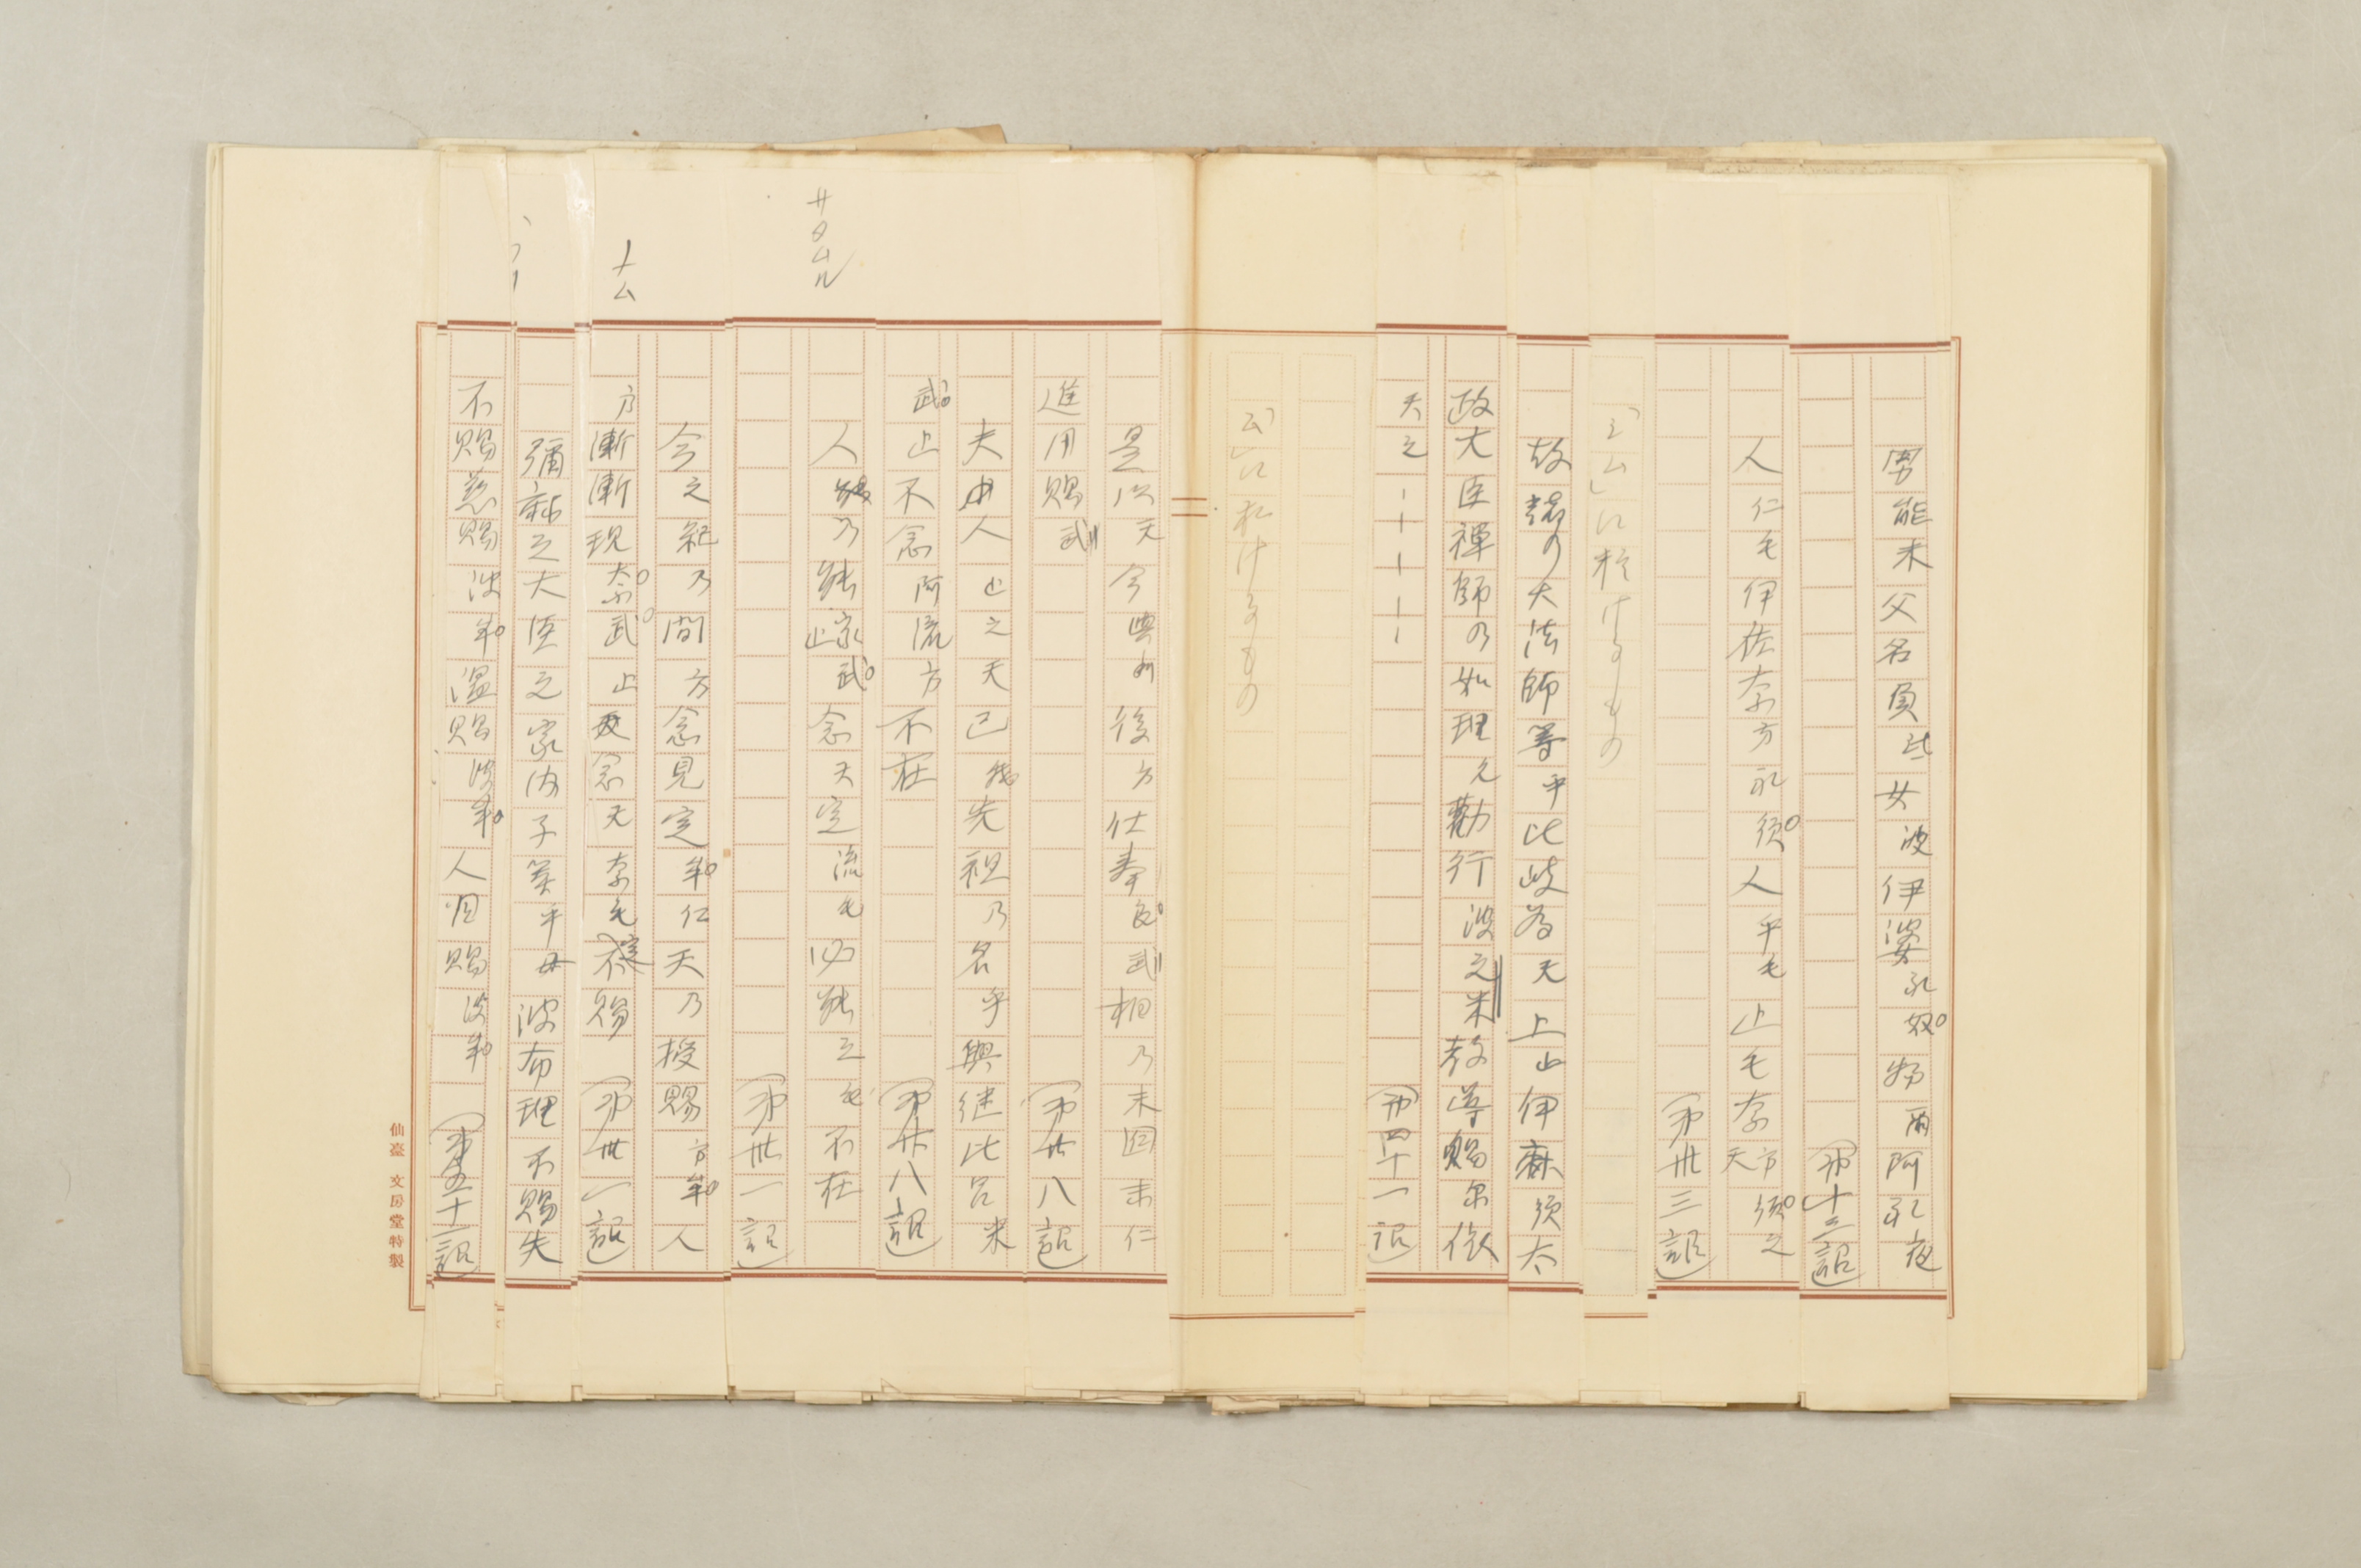 男能未父名負弖女波伊婆礼奴物尓阿礼夜
(第十三詔)
人仁毛伊佐奈方礼須人乎毛止毛奈方須之
天
(第卅三詔)
故諸の大法師等乎比岐為天上止伊麻須太
政大臣禅師の如理久勧行波之米教導賜尓依
天之－－－－
(第四十一詔)
にれけるもの
是以天今与利後方仕奉良武相乃未囙未仁
進用賜武
(第廿八詔)
夫由人止之天己我先祖乃名乎興継比呂米
武止不念阿流方不在
(第廿八詔)
サタムル
人我乃能家武止念天定流毛必能之毛不在
(第卅一詔)
今之紀乃間方念見定牟仁天乃授賜方牟人
ナム
方漸漸現奈武止念天奈毛定不賜
(第卅一詔)
弥麻之大臣之家内子等乎母波布理不賜失
不賜慈賜波牟温賜波牟人目賜波牟
(第五十一詔)
仙臺 文房堂特製